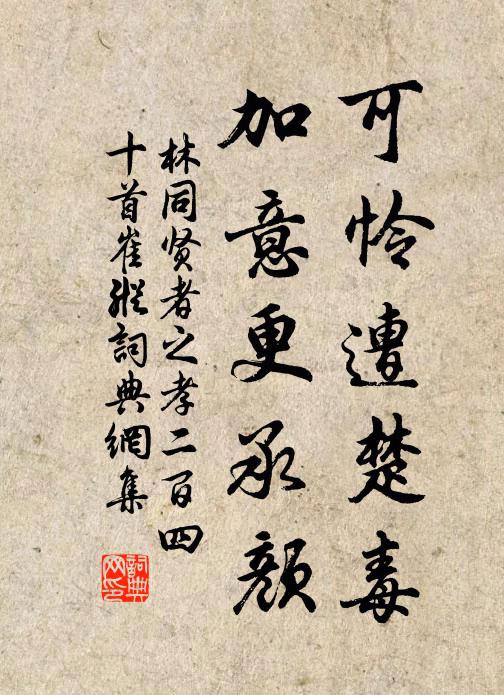 可怜遭楚毒
加意更承颜
林同贤者之孝二百四
十首崔纵词典網集
詞典網印